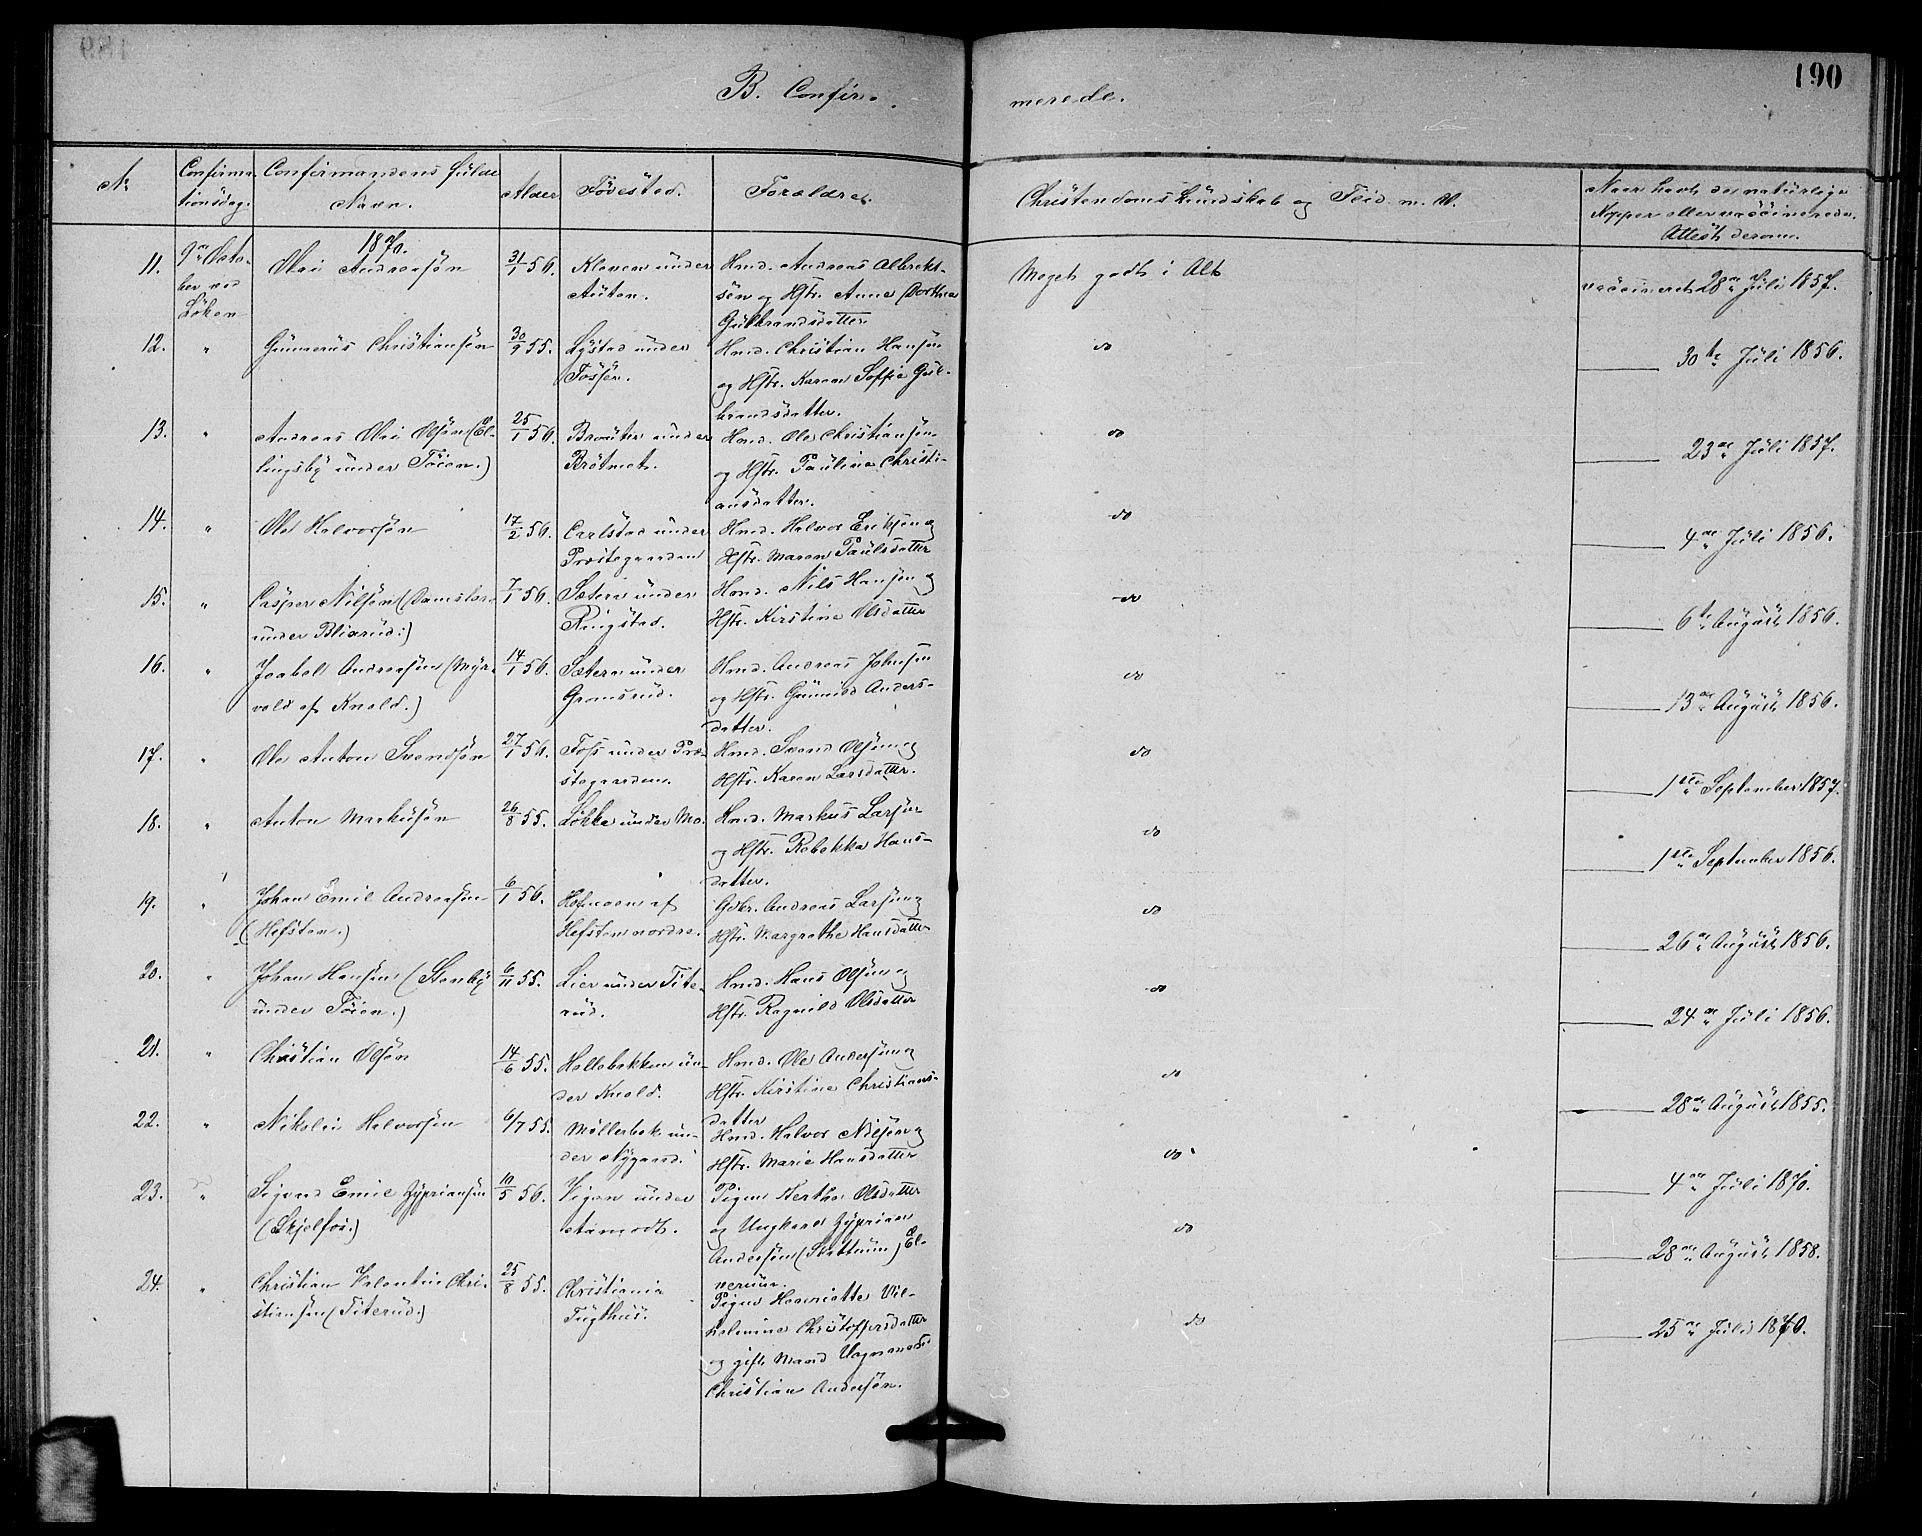 190
B. Confir-
merede.
No
Confirma-
tionsdag.
Confirmandens fulde
Navn.
Alder
Fødested.
Forældre.
Christendomskundskab og Flid m. V.
Naar havt de naturlige
Kopper eller vaccinerede.
Attest derom.
1870.
11.
9de Octo-
ber ved
Løken
Andreasøn
31/1 56.
Kleven under
Auten.
Hmd. Andreas Albrekt-
søn og Hstr. Anne Dorthea
Gulbrandsdatter
Meget godt i Alt
vaccineret 28de Juli 1857.
12.
"
Gunerius Christiansøn
30/9 55.
Lystad under
Fosser.
Hmd. Christian Hansøn
og Hstr. Karen Soffie Gul-
brandsdatter.
do
30te Juli 1856.
13.
"
Andreas Olai Olsøn (El-
lingsby under Tøien.)
25/1 56.
Braaten under
Brøtmet.
Hmd. Ole Christiansøn
og Hstr. Pauline Christi-
ansdatter.
do
23de Juli 1857.
14.
"
Ole Halvorsøn
17/2 56.
Carlstad under
Præstegaarden
Hmd. Halvor Eriksøn og
Hstr. Maren Paulsdatter
do
4de Juli 1856.
15.
"
Casper Nilsøn (Damslora
under Blixrud:)
7/1 56.
Sætern under
Ringstad.
Hmd. Nils Hansøn og
Hstr. Kirstine Olsdatter
do
6te August 1856.
16.
"
Isabel Andreasøn (Myr-
vold af Knold.)
14/1 56.
Sætern under
Gromsrud.
Hmd. Andreas Johnsøn
og Hstr. Gunild Anders-
datter.
do
13de August 1856.
17.
"
Ole Anton Svendsøn
27/1 56.
Foss under Præ-
stegaarden.
Hmd. Svend Olsøn og
Hstr. Karen Larsdatter.
do
1ste September 1857.
18.
"
Anton Markusøn
26/8 55.
Løkka under Mo.
Hmd. Markus Larsøn
og Hstr. Rebekka Hans-
datter.
do
1ste September 1856.
19.
"
Johan Emil Andreasøn
(Hefsten.)
6/1 56.
af
Hefsten nordre.
Gdbr. Andreas Larsøn og
Hstr. Margrethe Hansdatter
do
26de August 1856.
20.
"
Johan Hansøn (Stenby
under Tøien.)
6/11 55.
Lier under Tite-
rud.
Hmd. Hans Olsøn og
Hstr. Ragnild Olsdatter
do
24de Juli 1856.
21.
"
Christian Olsøn
14/6 55.
Hallebakken un-
der Knold.
Hmd. Ole Andersøn og
Hstr. Kirstine Christians-
datter
do
28de August 1855.
22.
"
Nikolai Halvorsøn
6/7 55.
Møllerbak un-
der Nygaard.
Hmd. Halvor Nilsøn og
Hstr. Marie Hansdatter
do
4de Juli 1870.
23.
"
Sigvard Emil Zypriansøn
(Skjelfos.)
10/5 56.
Vigen under
Aamodt.
Pigen Bertha Olsdatter
og Ungkarl Zyprian
Andersøn (Slattum) El-
verum.
do
28de August 1858.
24.
"
Christian Valentin Chri-
stiansøn (Titerud.)
25/8 55.
Christiania
Tugthus.
Pigen Henriette Vil-
helmine Christoffersdatter
og gift Mand Vognmand
Christian Andersøn.
do
25de Juli 1870.